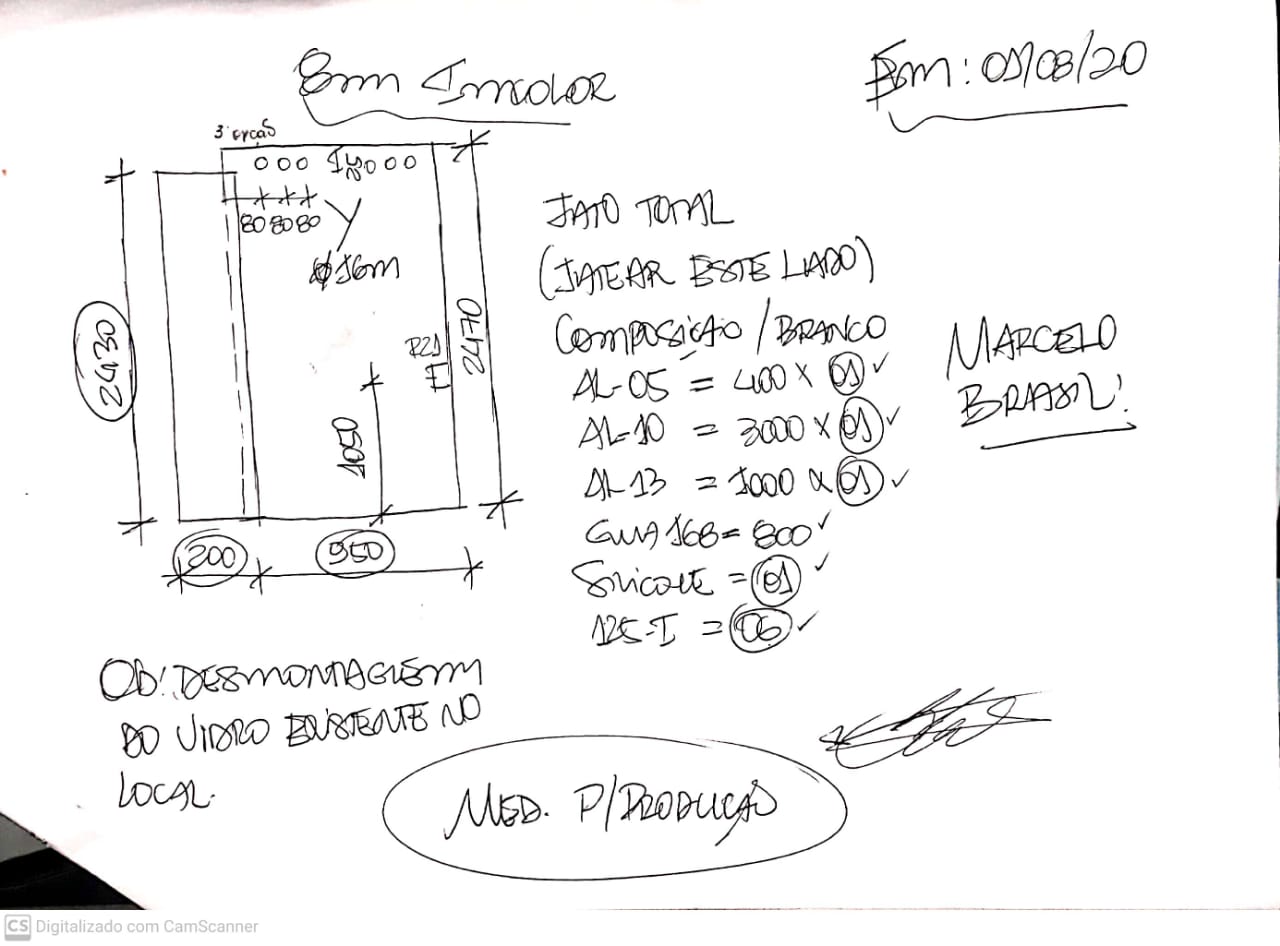 8mm Incolor
Em: 01/08/20
3 opção
80 80 80
Ø16m
2430
2470
1050
200
950
JATO TOTAL
(JATEAR ESTE LADO)
COMPOSIÇÃO / BRANCO
AL-05 = 400 x 01 ✓
AL-10 = 3000 x 01 ✓
AL-13 = 1000 x 01 ✓
GUIA 168 = 800 ✓
Silicone = 01 ✓
125-I = 06 ✓
MARCELO
BRASIL!
OB: DESMONTAGEM
DO VIDRO EXISTENTE NO
LOCAL.
MED. P/PRODUÇÃO
CS Digitalizado com CamScanner